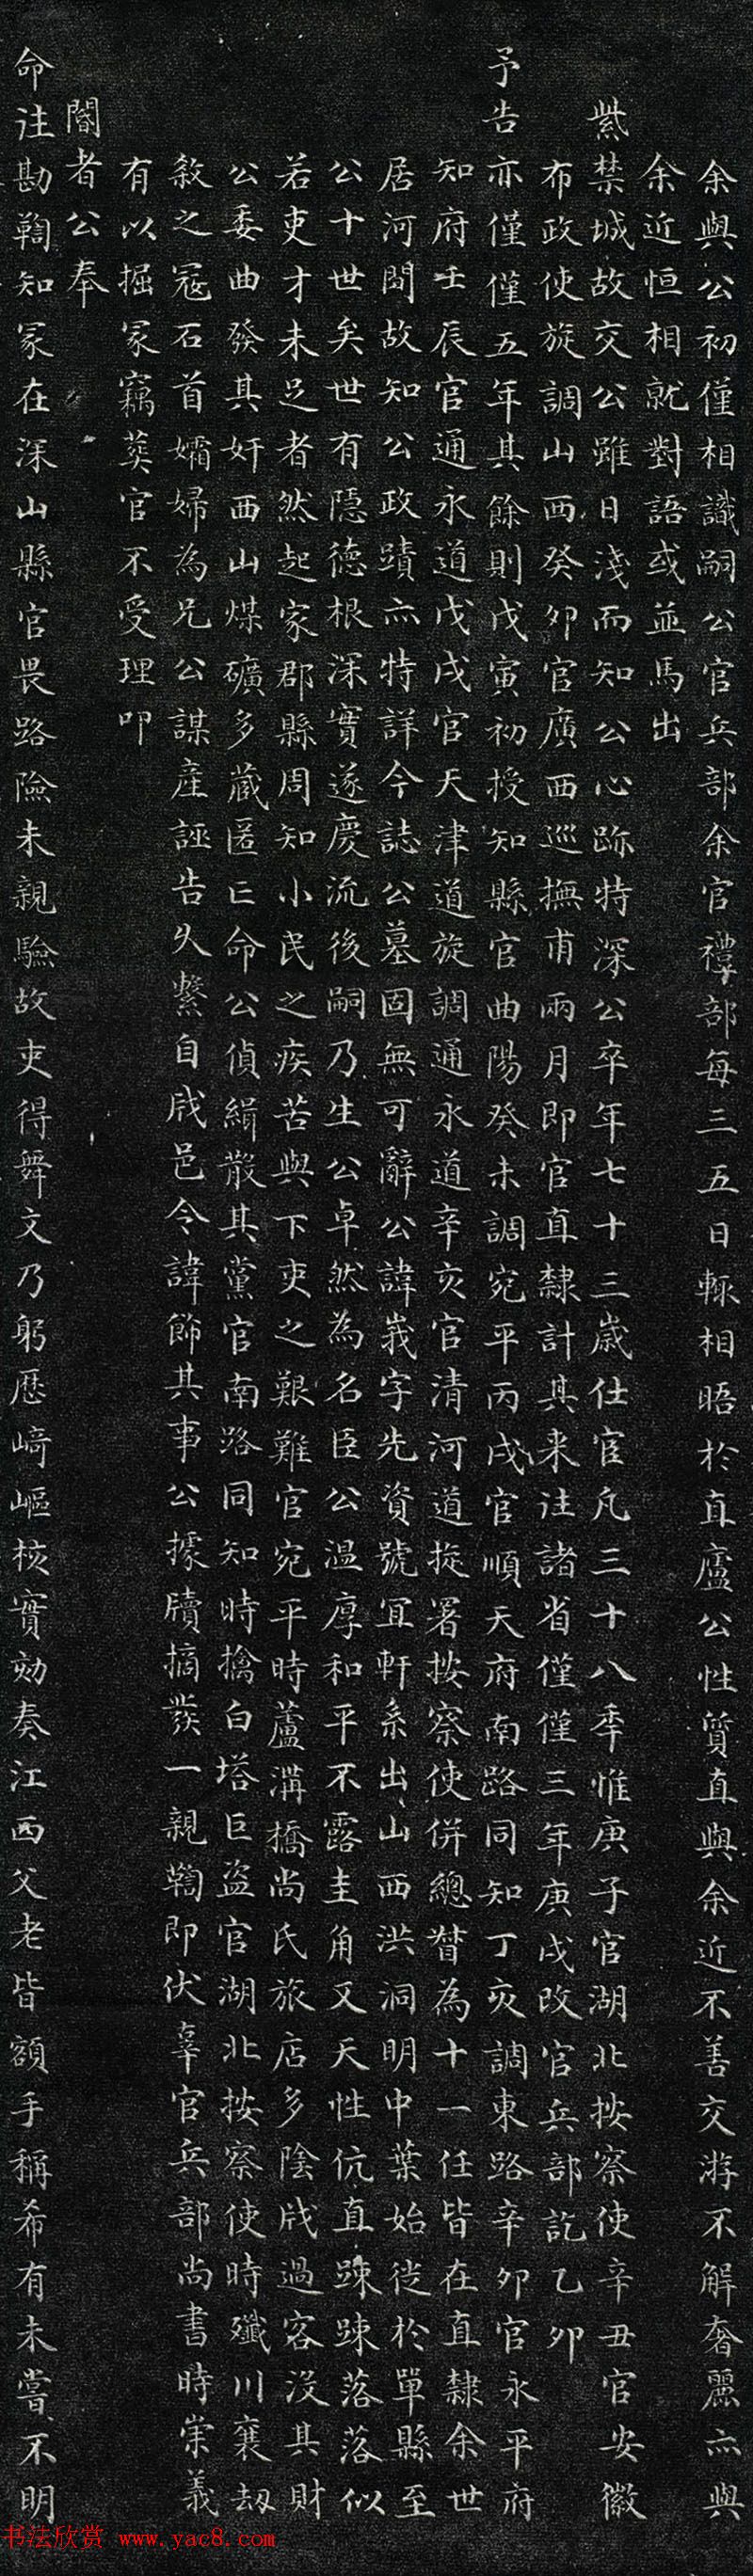 余與公初僅相識嗣公官兵部余官禮部每三五日輒相晤於直廬公性質直與余近不善交游不解奢麗亦與
余近恒相就對語或並馬出
紫禁城故交公雖日淺而知公心跡特深公卒年七十三歲仕宦凡三十八年惟庚子官湖北按察使辛丑官安徽
布政使旋調山西癸卯官廣西巡撫甫兩月即官直隸計其来往諸省僅僅三年庚戌改官兵部訖乙卯
予告亦僅僅五年其餘則戊寅初授知縣官曲陽癸未調宛平丙戌官順天府南路同知丁亥調東路辛卯官永平府
知府壬辰官通永道戊戌官天津道旋調通永道辛亥官清河道旋署按察使併總督為十一任皆在直隸余世
居河間故知公政蹟亦特詳今誌公墓固無可辭公諱峩字先資號宜軒系出山西洪洞明中葉始徙於單縣至
公十世矣世有隱德根深實遂慶流後嗣乃生公卓然為名臣公溫厚和平不露圭角又天性伉直踈踈落落似
若吏才未足者然起家郡縣周知小民之疾苦與下吏之艱難官宛平時蘆溝橋尚氏旅店多陰戕過客没其財
公委曲發其奸西山煤礦多藏匿亡命公偵緝散其黨官南路同知時擒白塔巨盜官湖北按察使時殲川襄劫
敘之冦石首孀婦為兄公謀産誣告久繫自戕邑令諱飾其事公據牘摘發一親鞫即伏辜官兵部尚書時崇義
有以掘冢竊葬官不受理叩
閽者公奉
命往勘鞫知冢在深山縣官畏路險未親驗故吏得舞文乃躬歷崎嶇核實劾奏江西父老皆額手稱希有未嘗不明
书法欣赏 www.yac8.com